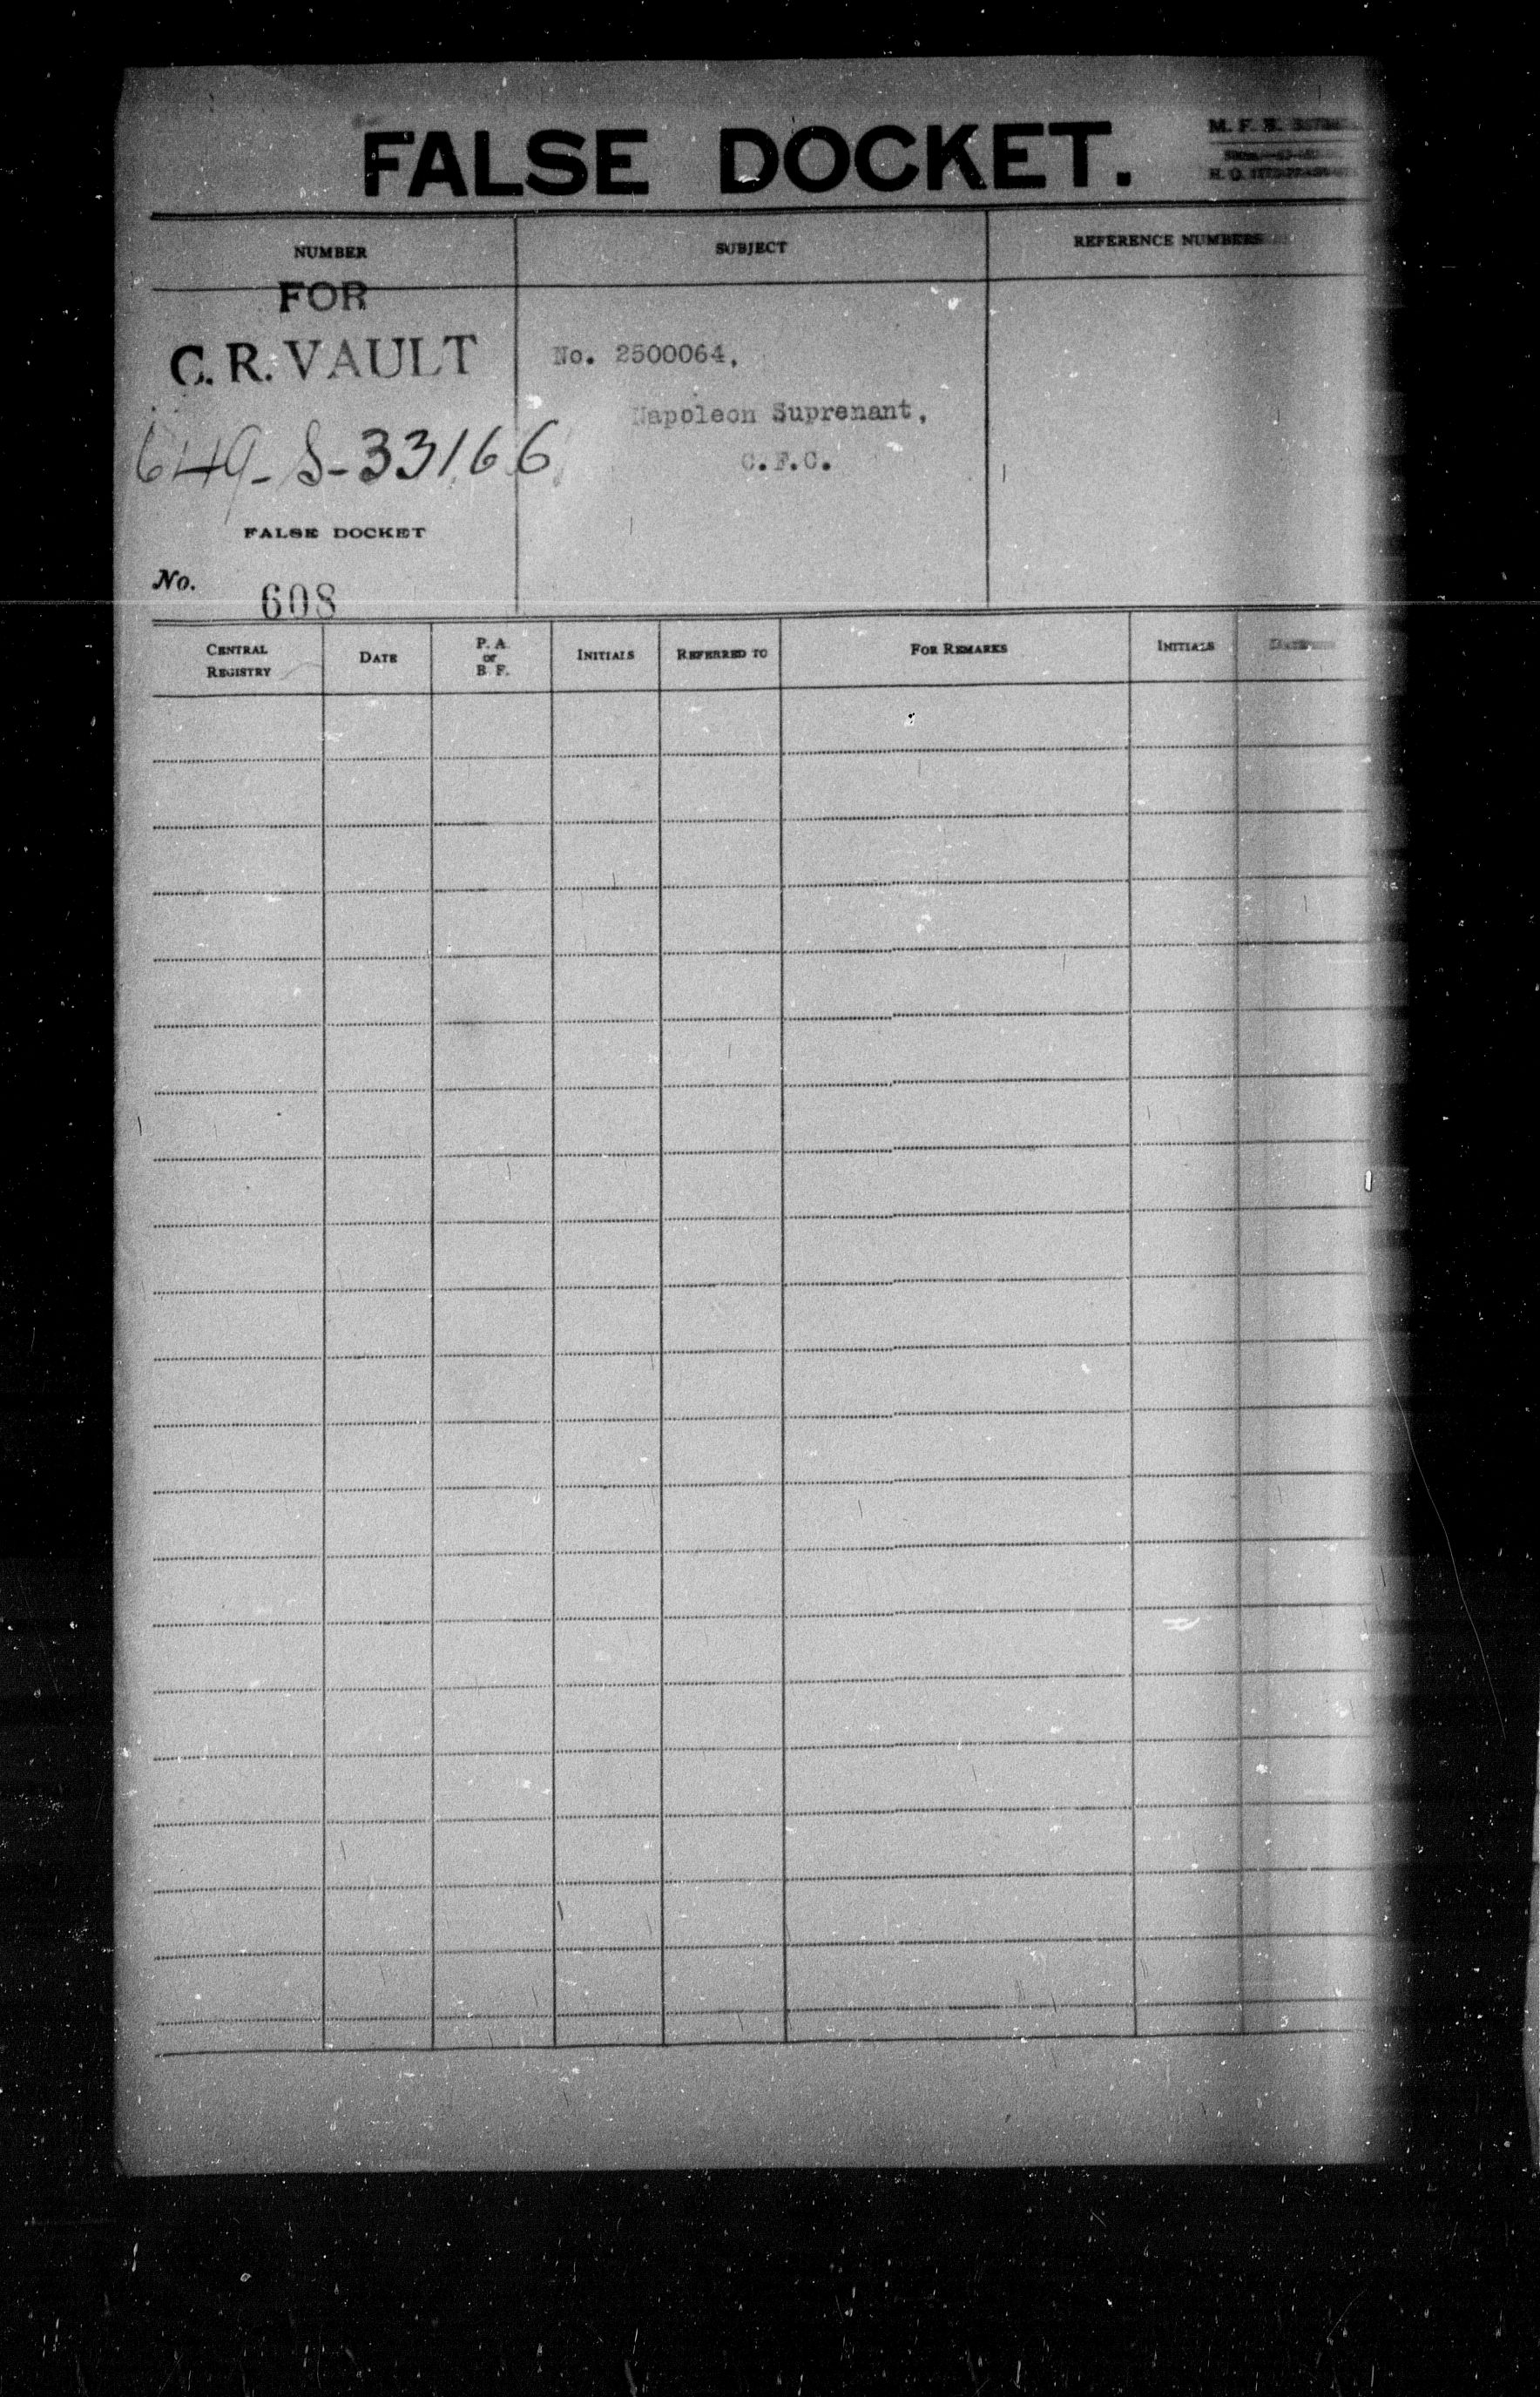 FALSE DOCKET.
M. F. B.
H. Q.
NUMBER
SUBJECT
REFERENCE NUMBERS
FOR
C. R. VAULT
649-S-33166
No. 2500064,
Napoleon Suprenant,
C.F.C.
FALSE DOCKET
No. 608
CENTRAL REGISTRY
DATE
P. A. or B. F.
INITIALS
REFERRED TO
FOR REMARKS
INITIALS